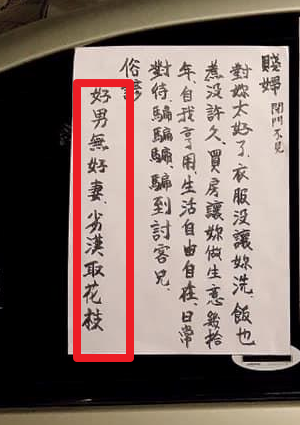 賤婦 閉門不見
對妳太好了、衣服沒讓妳洗、飯也
煮沒許久、買房讓妳做生意幾拾
年、自我享用、生活自由自在、日常
對待、騙騙騙騙到討客兄、
俗諺
好男無好妻、劣漢取花枝